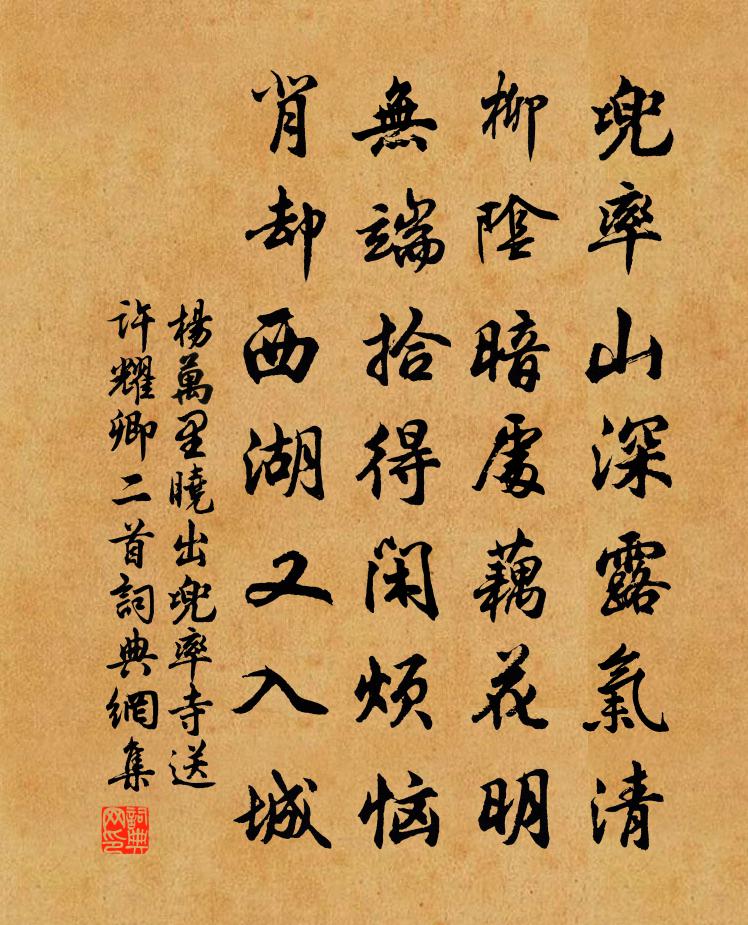 兜率山深露氣清
柳陰暗處藕花明
無端拾得閑煩惱
背却西湖又入城
楊萬里曉出兜率寺送
許耀卿二首詞典網集
詞典
网印